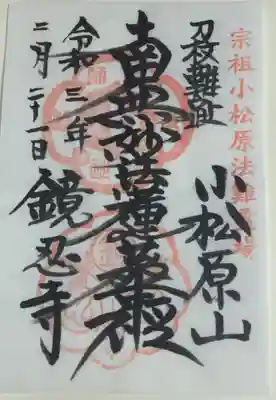 宗祖小松原法難霊場
刀杖難趾
小松原山
南無妙法蓮華経
令和三年
二月二十一日
鏡忍寺